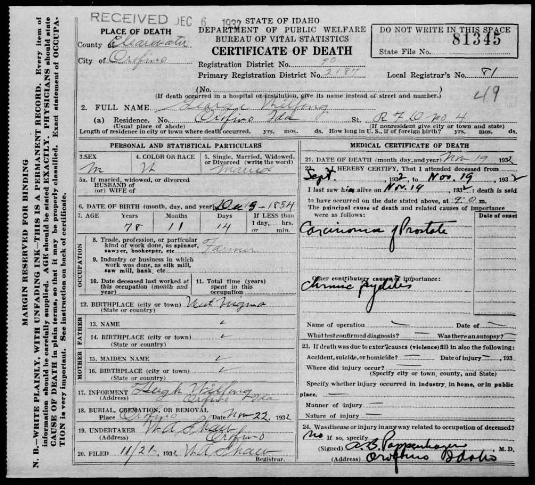 RECEIVED DEC 6 1932
STATE OF IDAHO
DEPARTMENT OF PUBLIC WELFARE
BUREAU OF VITAL STATISTICS
CERTIFICATE OF DEATH
DO NOT WRITE IN THIS SPACE
81345
State File No.
PLACE OF DEATH
County Clearwater
City of Orofino
Registration District No.
Primary Registration District No.
Local Registrar's No. 81
49
(No.
(If death occurred in a hospital or institution, give its name instead of street and number.
2. FULL NAME George
(a) Residence. No. Orofino Ida St. R.F.D. No. 4
(Usual place of abode) (If nonresident give city or town and state)
Length of residence in city or town where death occurred. yrs. mos. ds. How long in U.S., if of foreign birth? yrs. mos. ds.
PERSONAL AND STATISTICAL PARTICULARS
3. SEX M
4. COLOR OR RACE Wh
5. Single, Married, Widowed, or Divorced (write the word)
5a. If married, widowed, or divorced
HUSBAND of
(or) WIFE of
6. DATE OF BIRTH (month, day, and year) Dec 5 - 1854
7. AGE Years Months Days If LESS than 1 day, hrs. or min.
78 11 14
OCCUPATION
8. Trade, profession, or particular kind of work done, as spinner, sawyer, bookkeeper, etc. Farmer
9. Industry or business in which work was done, as silk mill, saw mill, bank, etc.
10. Date deceased last worked at this occupation (month and year)
11. Total time (years) spent in this occupation
12. BIRTHPLACE (city or town) West Virginia
(State or country)
FATHER
13. NAME
14. BIRTHPLACE (city or town)
(State or country)
MOTHER
15. MAIDEN NAME
16. BIRTHPLACE (city or town)
(State or country)
17. INFORMENT Hugh
(Address) Orofino Ida
18. BURIAL, CREMATION, OR REMOVAL
Place Orofino Date Nov 22, 1932
19. UNDERTAKER V.A. Shaw
(Address) Orofino
20. FILED 11/21, 1932 V.A. Shaw
Registrar.
MEDICAL CERTIFICATE OF DEATH
21. DATE OF DEATH (month, day, and year) Nov 19 1932
22. I HEREBY CERTIFY, That I attended deceased from
Sept, 1932, to Nov. 19, 1932
I last saw him alive on Nov. 19, 1932, death is said
to have occurred on the date stated above, at 9:0 m.
The principal cause of death and related causes of importance were as follows:
Carcinoma of Prostate
Other contributory causes of importance:
Chronic pyelitis
Name of operation Date of
What test confirmed diagnosis? Was there an autopsy?
23. If death was due to external causes (violence) fill in also the following:
Accident, suicide, or homicide? Date of injury 193
Where did injury occur?
(Specify city or town, county, and State)
Specify whether injury occurred in industry, in home, or in public place.
Manner of injury
Nature of injury
24. Was disease or injury in any way related to occupation of deceased?
No If so, specify
(Signed) M.D.
(Address) Orofino Idaho
MARGIN RESERVED FOR BINDING
N. B.—WRITE PLAINLY, WITH UNFADING INK—THIS IS A PERMANENT RECORD. Every item of information should be carefully supplied. AGE should be stated EXACTLY. PHYSICIANS should state CAUSE OF DEATH in plain terms, so that it may be properly classified. Exact statement of OCCUPATION is very important. See instruction on back of certificate.